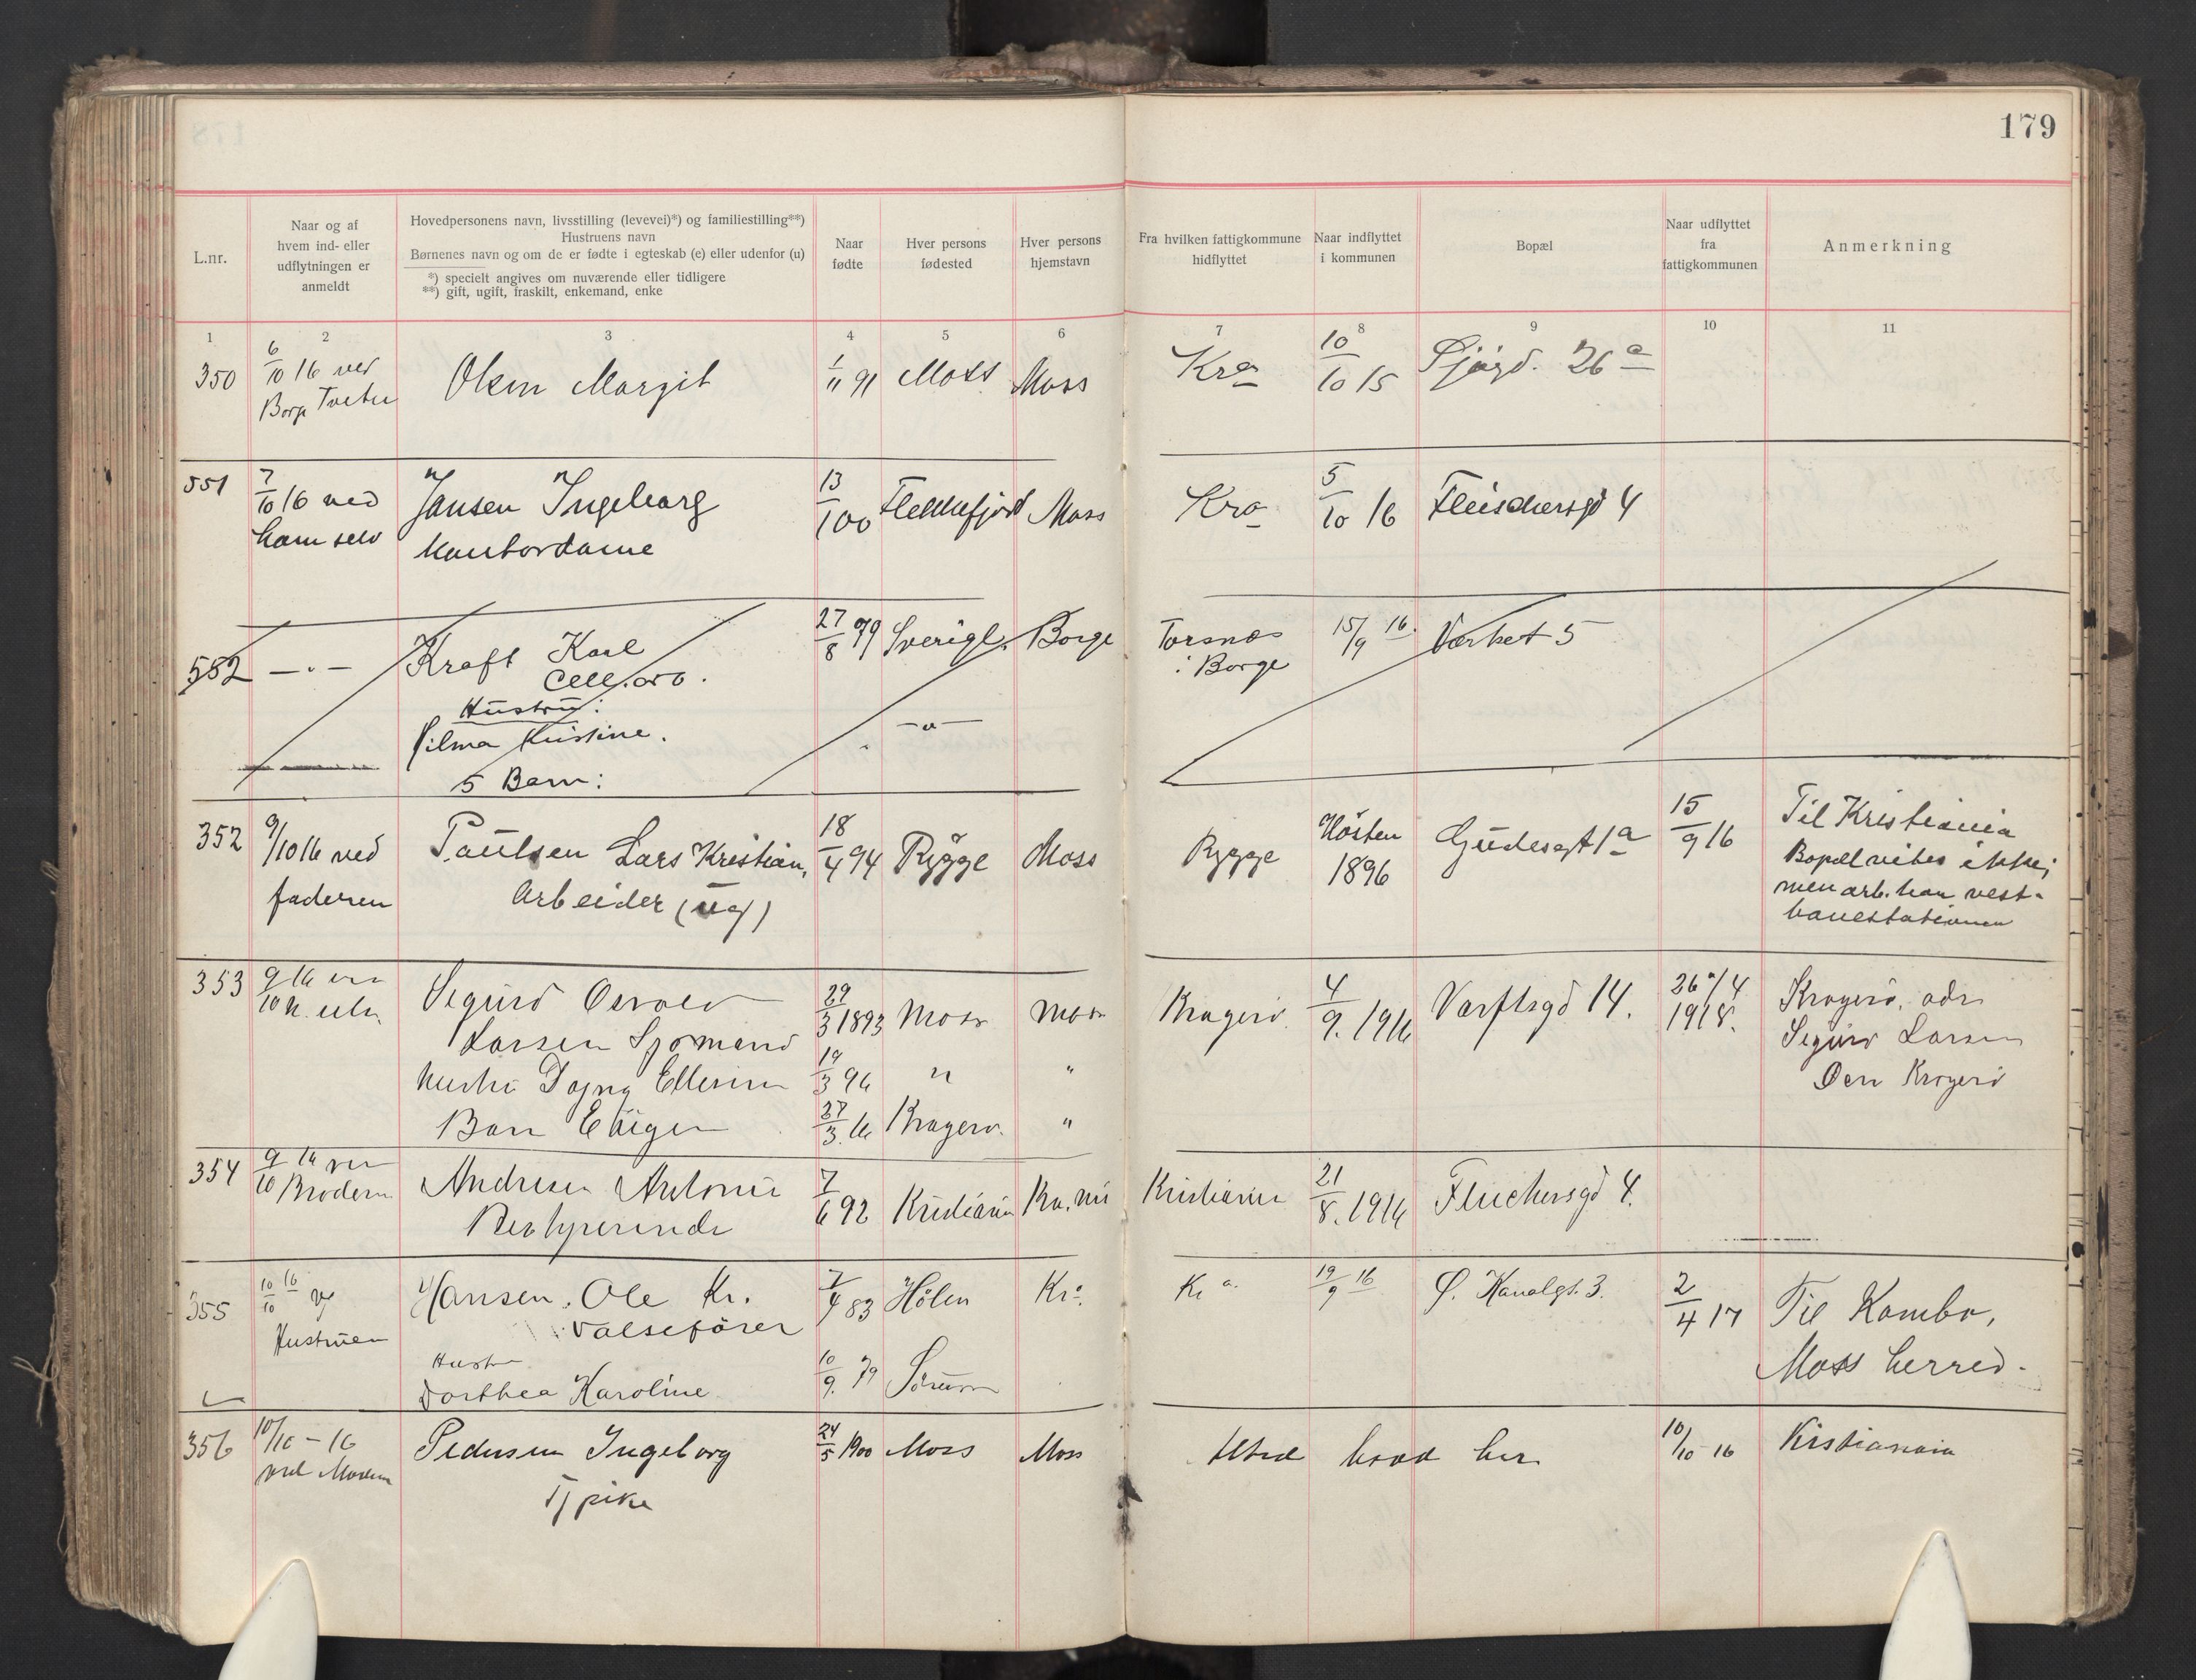 179
L.nr.
Naar og af
hvem ind- eller
udflytningen er
anmeldt
Hovedpersonens navn, livsstilling (levevei)*) og familiestilling**)
Hustruens navn
Børnenes navn og om de er fødte i egteskab (e) eller udenfor (u)
*) specielt angives om nuværende eller tidligere
**) gift, ugift, fraskilt, enkemand, enke
Naar
fødte
Hver persons
fødested
Hver persons
hjemstavn
Fra hvilken fattigkommune
hidflyttet
Naar indflyttet
i kommunen
Bopæl
Naar udflyttet
fra
fattigkommunen
Anmerkning
1 2 3 4 5 6 7 8 9 10 11
350 6/10 16 ved Olsen Margit 1/11 91 Moss Moss Kra 10/10 15 26a
Borg Tveter
551 7/10 16 ved Jansen Ingeborg 13/1 00 Flekkefjord Moss Kra 5/10 16 Fleischersgd 4
ham selv Kontordame
552 — . — Kraft Karl 27/8 79 Sverige Borge Torsnæs 15/9 16. Værket 5
Cell. arb. i Borge
Hustru:
Vilma Kristine. —"—
5 Barn:
352 9/10 16 ved Paulsen Lars Kristian, 18/4 94 Rygge Moss Rygge Hösten 1896 Gudesgt 1a 15/9 16 Til Kristiania
faderen Arbeider (ug) Bopæl vites ikke;
men arb. paa vest-
banestationen
353 9/10 16 Sigurd Osvald 29/3 1893 Moss Moss Kragerø 4/9. 1916 Værftsgd 14. 26/4 1918. Kragerø, adr.
Larsen Sjømand Sigurd Larsen
Hustru Dagny 19/3 96 " " Øen Kragerø
Barn 27/3. 16 Kragerø. "
354 9/10 16 ved Andresen Antonie 7/6 92 Kristiania Kra. Kristiania 21/8. 1916 Fleichersgd 4.
Broderen Bestyrerinde
355 10/10 16 v/ Hansen, Ole Kr. 7/4 83 Hölen Kra. Kra. 19/9 16 Ø. Kanalgt. 3. 2/4 17 Til Kambo,
Hustruen Valsefører Moss herred.
Hustru
Dorthea Karoline 10/9. 79 Sörum
356 10/10 – 16 Pedersen Ingeborg 24/5 1900 Moss Moss Altid boed her 10/10 16 Kristiania
ved Moderen Tj pike